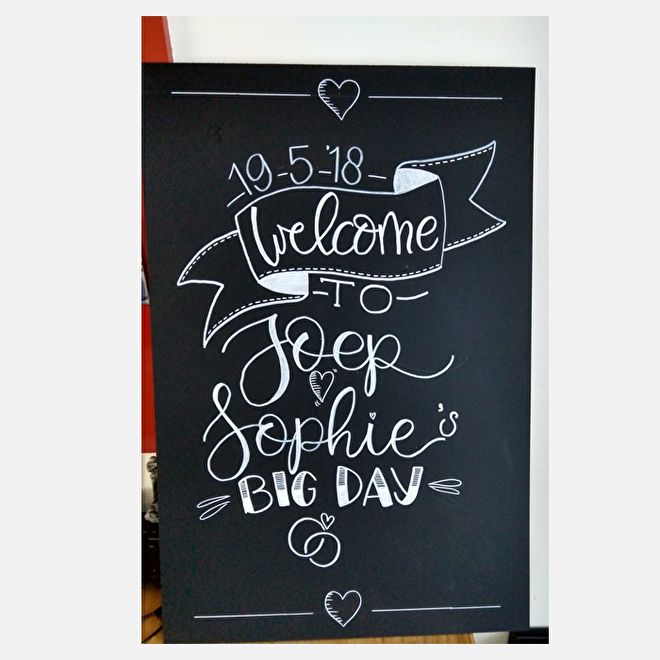 19-5-'18-
Welcome
-TO-
Joep
Sophie's
BIG DAY